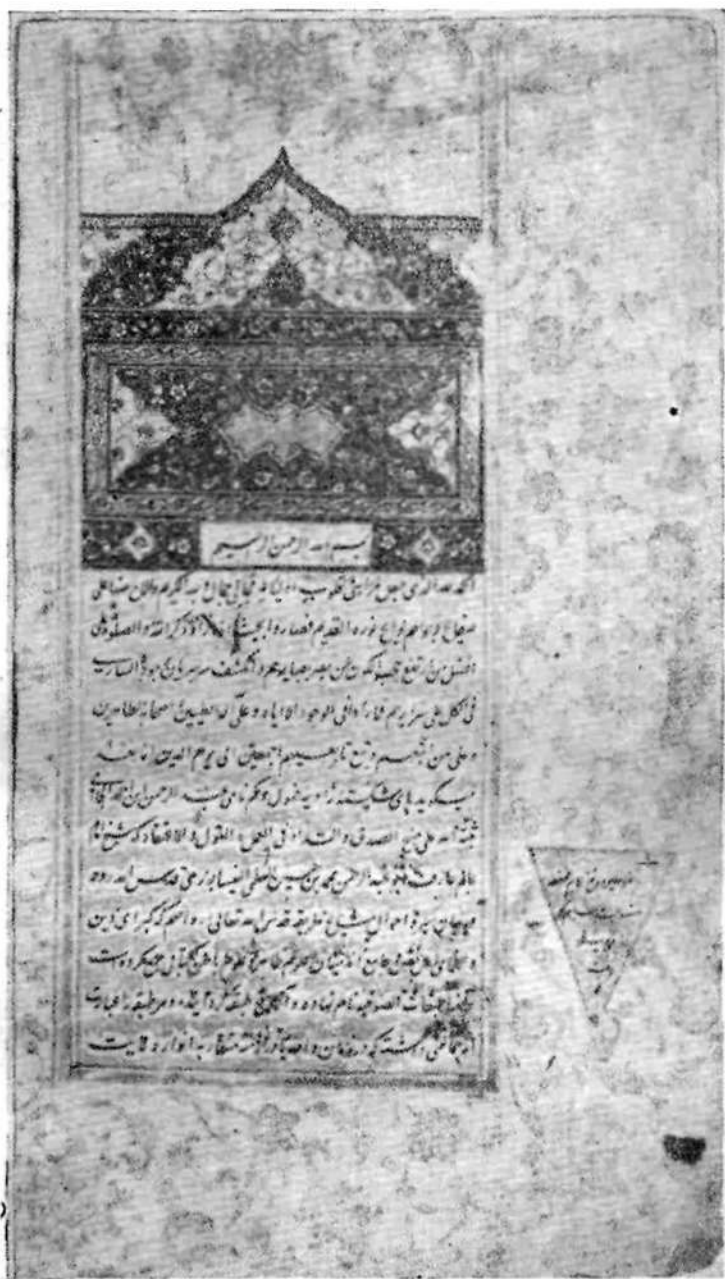 بسم الله الرحمن الرحيم
الحمد لله الذى جعل مرائى قلوب اوليائه مجالى جمال وجهه الكريم والاح منها على
صفايح وجوههم لوايح نوره القديم فصاروا بحيث اذا راوا ذكر الله والصلوة على
افضل من ارتفع حجب الكون عن بصر وانكشف سر سريان وجوده السارى
فى الكل على سريرته فما راى فى الوجود الا اياه وعلى آله الطيبين واصحابه الطاهرين
وعلى من تبعهم وتبع تابعيهم اجمعين الى يوم الدين اما بعد
ميگويد پاى شكسته زاويه خمول وگم نامى عبد الرحمن ابن احمد الجامى
ثبته الله على منهج الصدق والسداد فى العمل والقول والاعتقاد كه شيخ امام
عالم عارف ابو عبد الرحمن محمد بن حسين السلمى النيسابورى قدس الله روحه
در بيان سير واحوال مشايخ طريقه قدس الله تعالى ارواحهم كه كبراى دين
و اهل يقين جامع ميان علوم ظاهره وعلوم باطن كتابى جمع كرده است
طبقات الصوفيه نام نهاده و پنج طبقه گردانيده وهر طبقه را عبارت
از جماعتى داشته كه در زمان واحد يا ازمنه متقاربه انوار ولايت